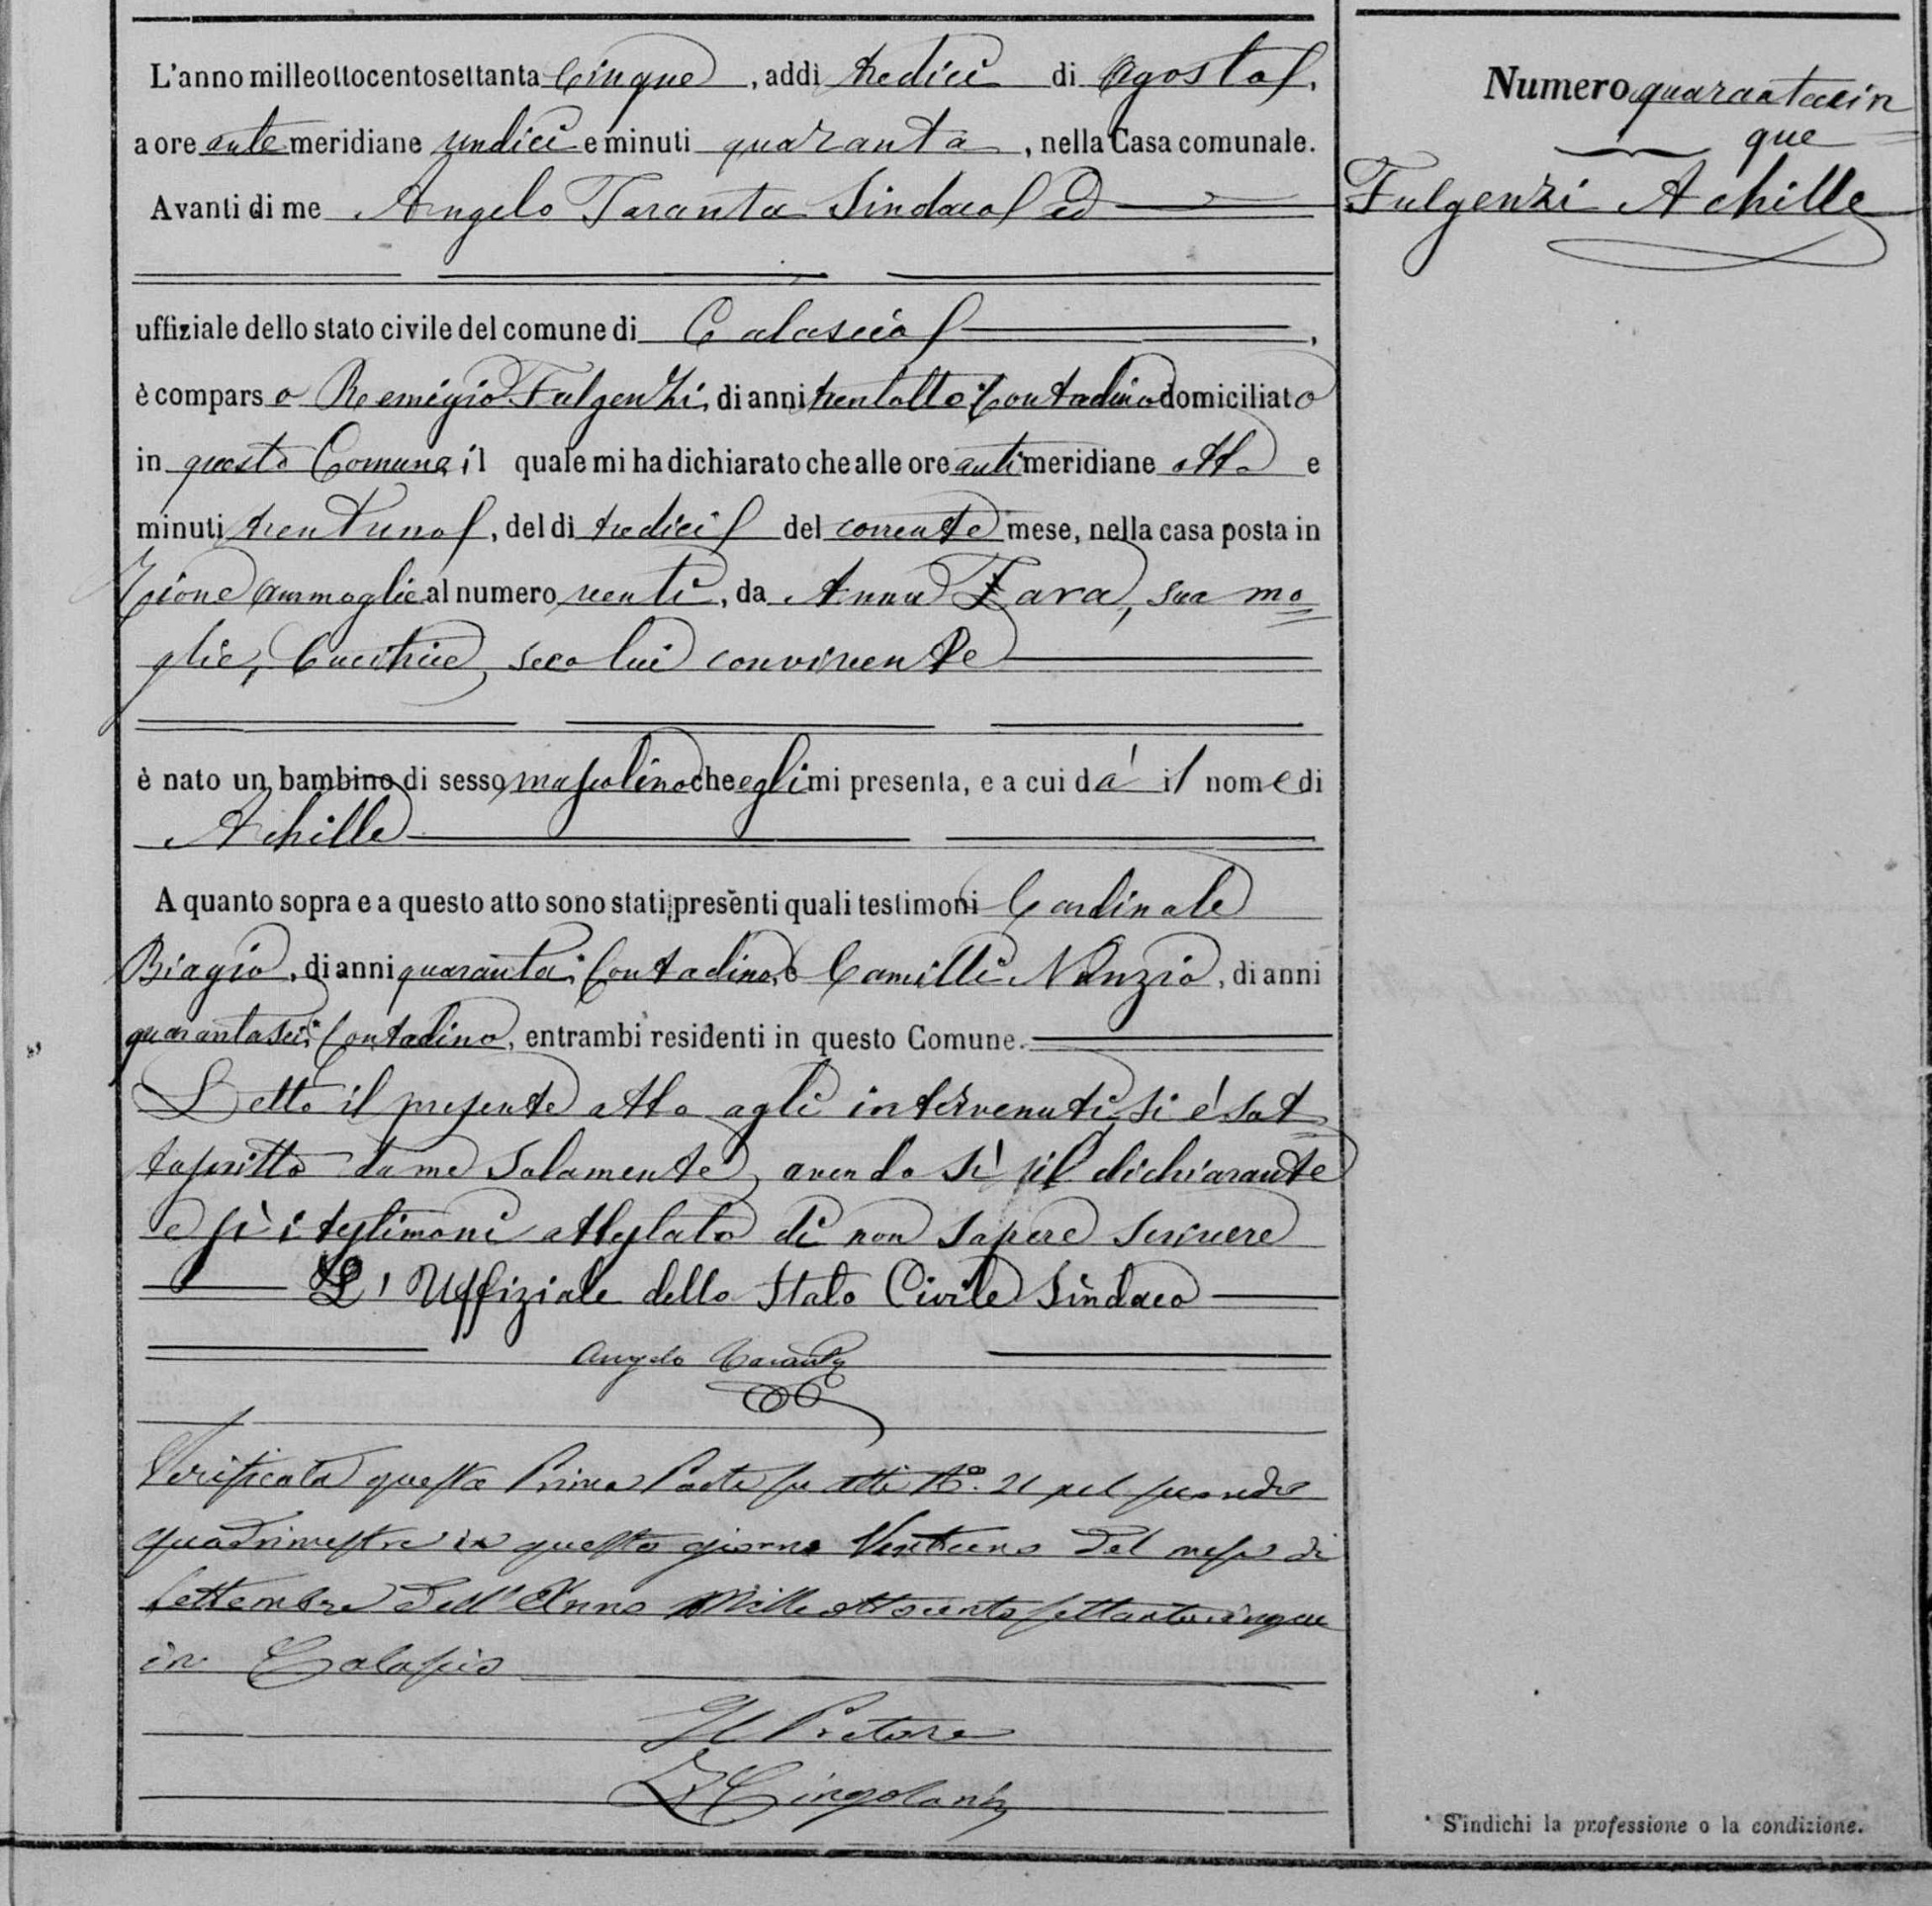 L'anno milleottocentosettanta Cinque, addì tredici di Agosto,
a ore antemeridiane undici e minuti quaranta, nella Casa comunale.
Avanti di me Angelo Taranta Sindaco ed
uffiziale dello stato civile del comune di Calascio,
è comparso Remigio Fulgenzi, di anni trentotto Contadino domiciliato
in questo Comune, il quale mi ha dichiarato che alle ore antimeridiane otto e
minuti trentuno, del dì tredici del corrente mese, nella casa posta in
al numero venti, da Anna Zara, sua mo
glie, Cucitrice, seco lui convivente
è nato un bambino di sesso mascolino che egli mi presenta, e a cui dà il nome di
Achille
A quanto sopra e a questo atto sono stati presenti quali testimoni Cardinale
Biagio, di anni quaranta, Contadino, e Camilli Nunzio, di anni
quarantasei, Contadino, entrambi residenti in questo Comune.
Letto il presente atto agli intervenuti, si è sot
toscritto da me solamente, avendo sì il dichiarante
e sì i testimoni attestato di non sapere scrivere
L'Uffiziale dello Stato Civile Sindaco
Angelo Taranta
Verificata questa Prima Parte su atti N.º 21 pel secondo
quadrimestre in questo giorno Ventuno del mese di
Settembre dell'Anno Milleottocentosettantacinque
in Calascio
Il Pretore
Cingolani
Numero quarantacin
que
Fulgenzi Achille
* S'indichi la professione o la condizione.